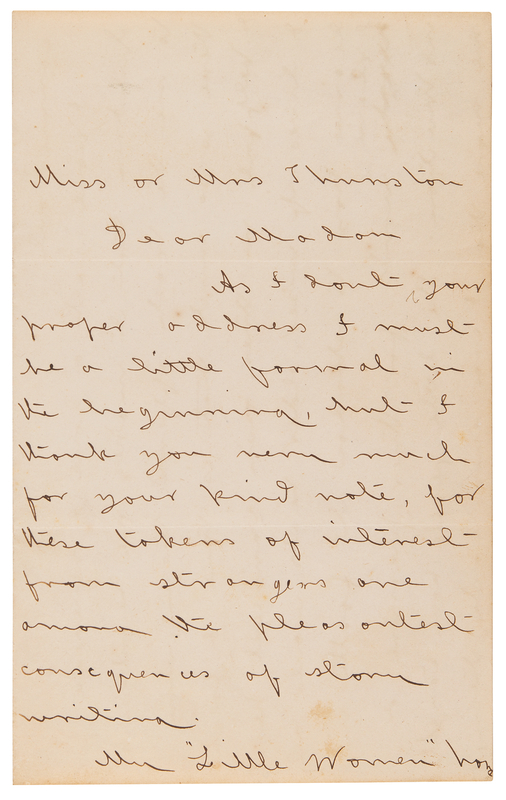 Miss or Mrs Thurston
Dear Madam
As I dont your
proper address I must
be a little formal in
the beginning, but I
thank you very much
for your kind note, for
these tokens of interest
from strangers are
among the pleasantest
consequences of story
writing.
My "Little Women" has